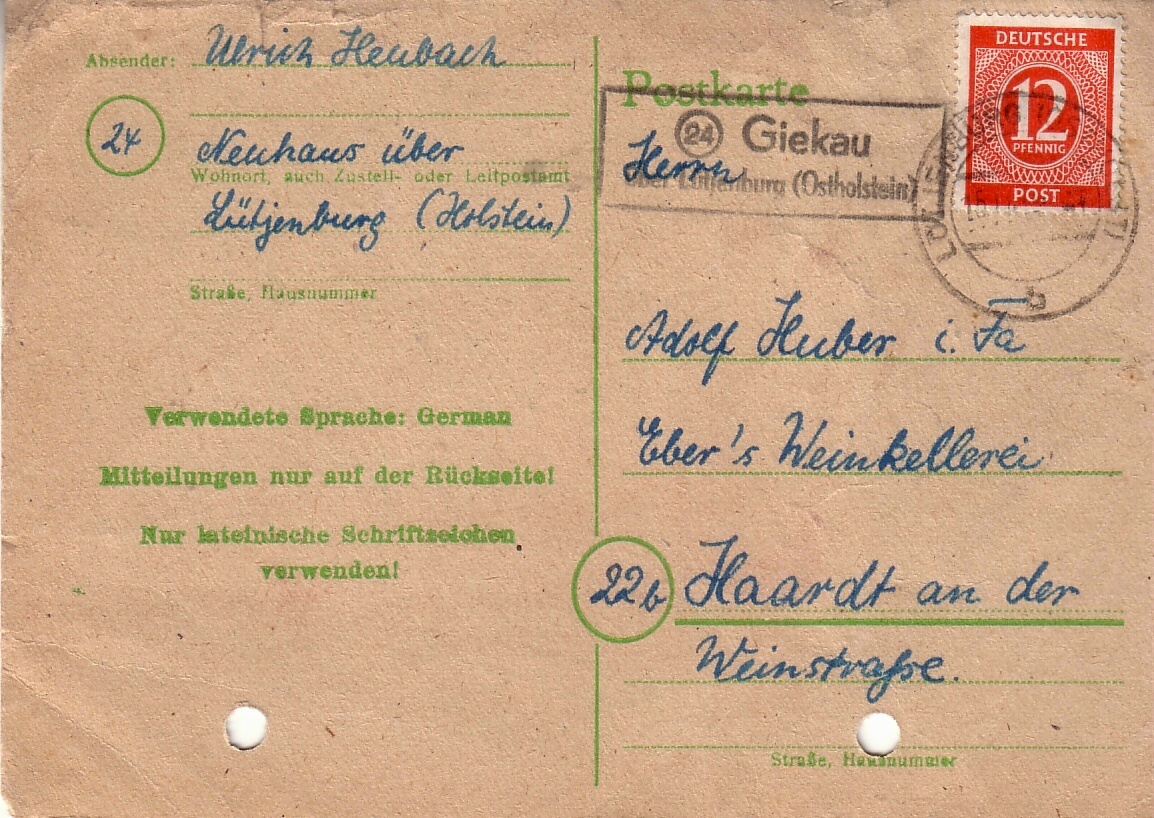 Absender: Ulrich Heubach
24
Neuhaus über
Wohnort, auch Zustell- oder Leitpostamt
Lütjenburg (Holstein)
Straße, Hausnummer
Verwendete Sprache: German
Mitteilungen nur auf der Rückseite!
Nur lateinische Schriftzeichen
verwenden!
Postkarte
24 Giekau
über Lütjenburg (Ostholstein)
DEUTSCHE
12
PFENNIG
POST
b
Herrn
Adolf Huber i. Fa
Eber's Weinkellerei
22b Haardt an der
Weinstraße.
Straße, Hausnummer